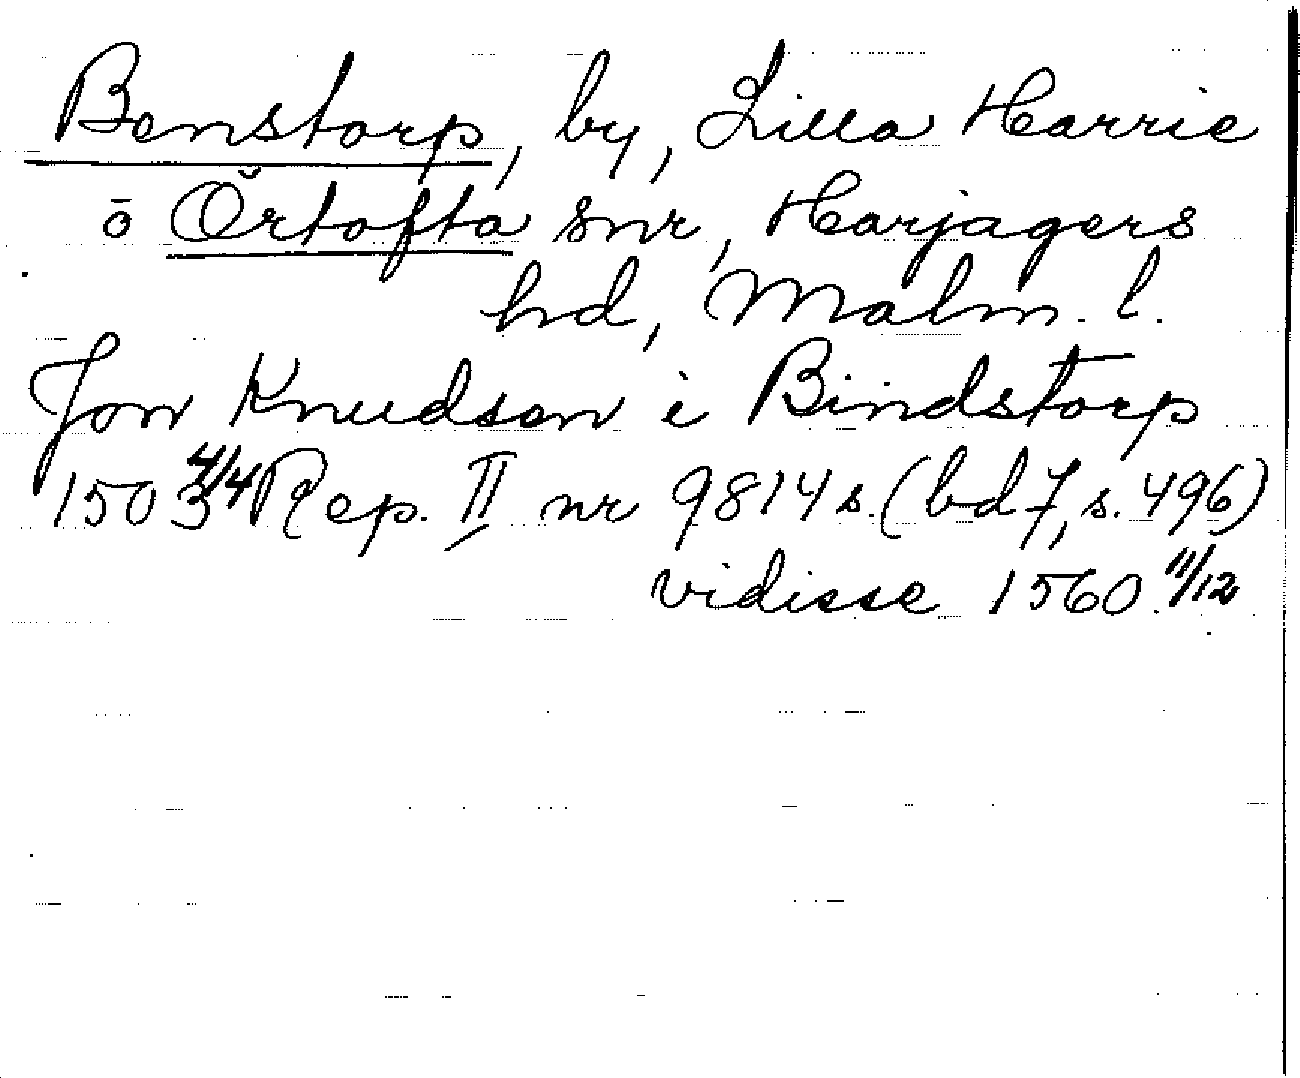 Benstorp, by, Lilla Harrie
ō Örtofta snr, Harjagers
hd, Malm. l.
Jon Knudsen i Bindstorp
1503 4/4 Rep. II nr 9814 s. (bd 7, s. 496)
vidisse 1560 11/12